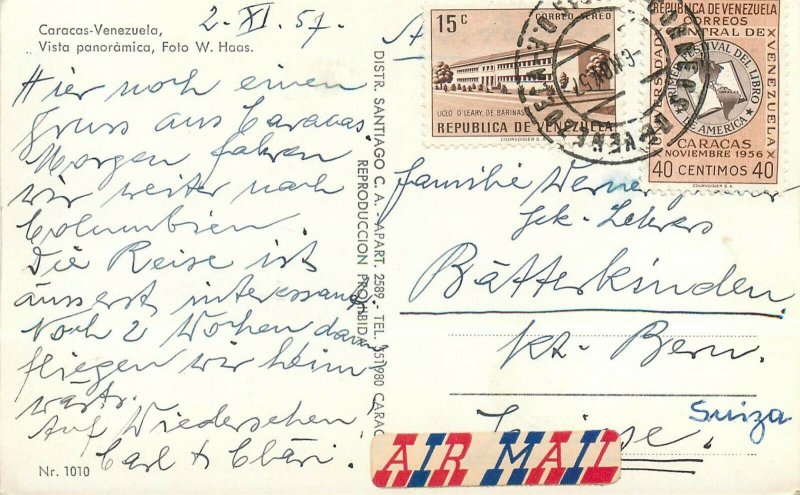 Caracas-Venezuela,
Vista panoràmica, Foto W. Haas.
2. XI. 57.
Hier noch einen
Gruss aus Caracas.
Morgen fahren
wir weiter nach
Columbien.
Die Reise ist
äusserst interessant
Noch 2 Wochen dann
fliegen wir heim
wärts.
Auf Wiedersehen
Carl & Cläri.
Nr. 1010
DISTR. SANTIAGO C. A. - APART. 2589 - TEL. 351980 CARAC
REPRODUCCION PROHIBID
15 C CORREO AEREO
LICEO O'LEARY, DE BARINAS
REPUBLICA DE VENEZUELA
COURVOISIER S.A.
REPUBLICA DE VENEZUELA
CORREOS
CENTRAL DE VENEZUELA
PRIMER FESTIVAL DEL LIBRO
DE AMERICA
CARACAS
NOVIEMBRE 1956
40 CENTIMOS 40
COURVOISIER S.A.
Familie Werner
Sek-Lehrers
Bätterkinden
Kt. Bern.
Suiza
Suisse.
AIR MAIL